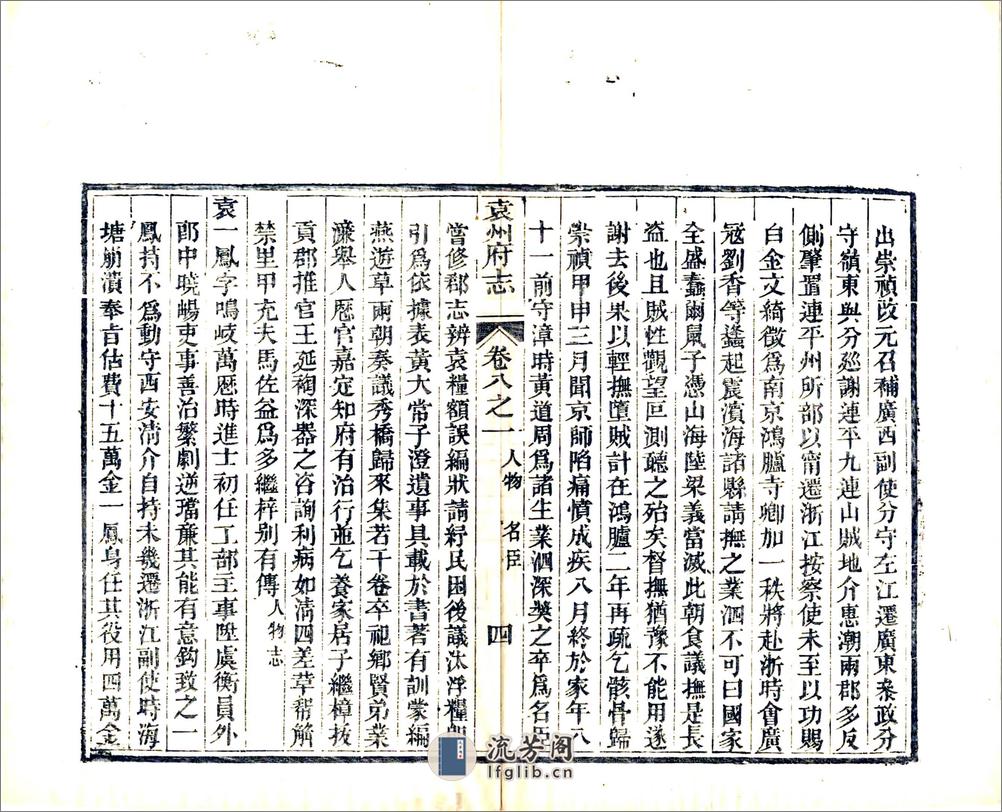 出崇禎改元召補廣西副使分守左江遷廣東叅政分
守嶺東與分巡謝連平九連山賊地介惠潮兩郡多反
側肇置連平州所部以甯遷浙江按察使未至以功賜
白金文綺徵爲南京鴻臚寺卿加一秩將赴浙時會廣
冦劉香等蠭起震濱海諸縣請撫之業泗不可曰國家
全盛蠢爾鼠子憑山海陸梁義當滅此朝食議撫是長
盗也且賊性觀望叵測聽之殆矣督撫猶豫不能用遂
謝去後果以輕撫墮賊計在鴻臚二年再疏乞骸骨歸
崇禎甲申三月聞京師陷痛憤成疾八月終於家年八
十一前守漳時黃道周爲諸生業泗深奬之卒爲名臣
袁州府志
卷八之一
人物 名臣
四
嘗修郡志辨袁糧額誤編狀請紓民困後議汰浮糧卽
引爲依據表黃大常子澄遺事具載於書著有訓蒙編
燕遊草兩朝奏議秀橋歸來集若干卷卒祀鄉賢弟業
濂舉人歷官嘉定知府有治行並乞養家居子繼樟拔
貢郡推官王延䄻深器之咨詢利病如淸四差草幇解
禁里甲充夫馬佐益爲多繼梓别有傳人物志
袁一鳳字鳴岐萬歷時進士初任工部主事陞虞衡員外
郎中曉暢吏事善治繁劇逆璫亷其能有意鈎致之一
鳳持不爲動守西安淸介自持未幾遷浙江副使時海
塘崩潰奉旨估費十五萬金一鳳身任其役用四萬金
流芳阁
lfglib.cn